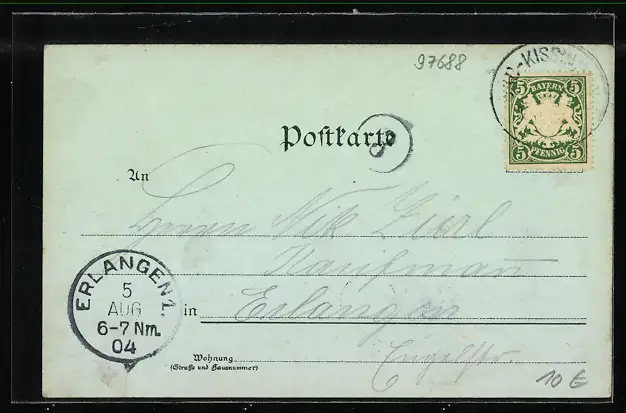 97688
BAD-KISSINGEN
5 BAYERN 5
5 PFENNIG 5
Postkarte
9
An
Herrn Nik
Kaufmann
ERLANGEN 1.
5
AUG
6-7 Nm.
04
in Erlangen
Wohnung
(Straße und Hausnummer)
Engelstr.
10 €